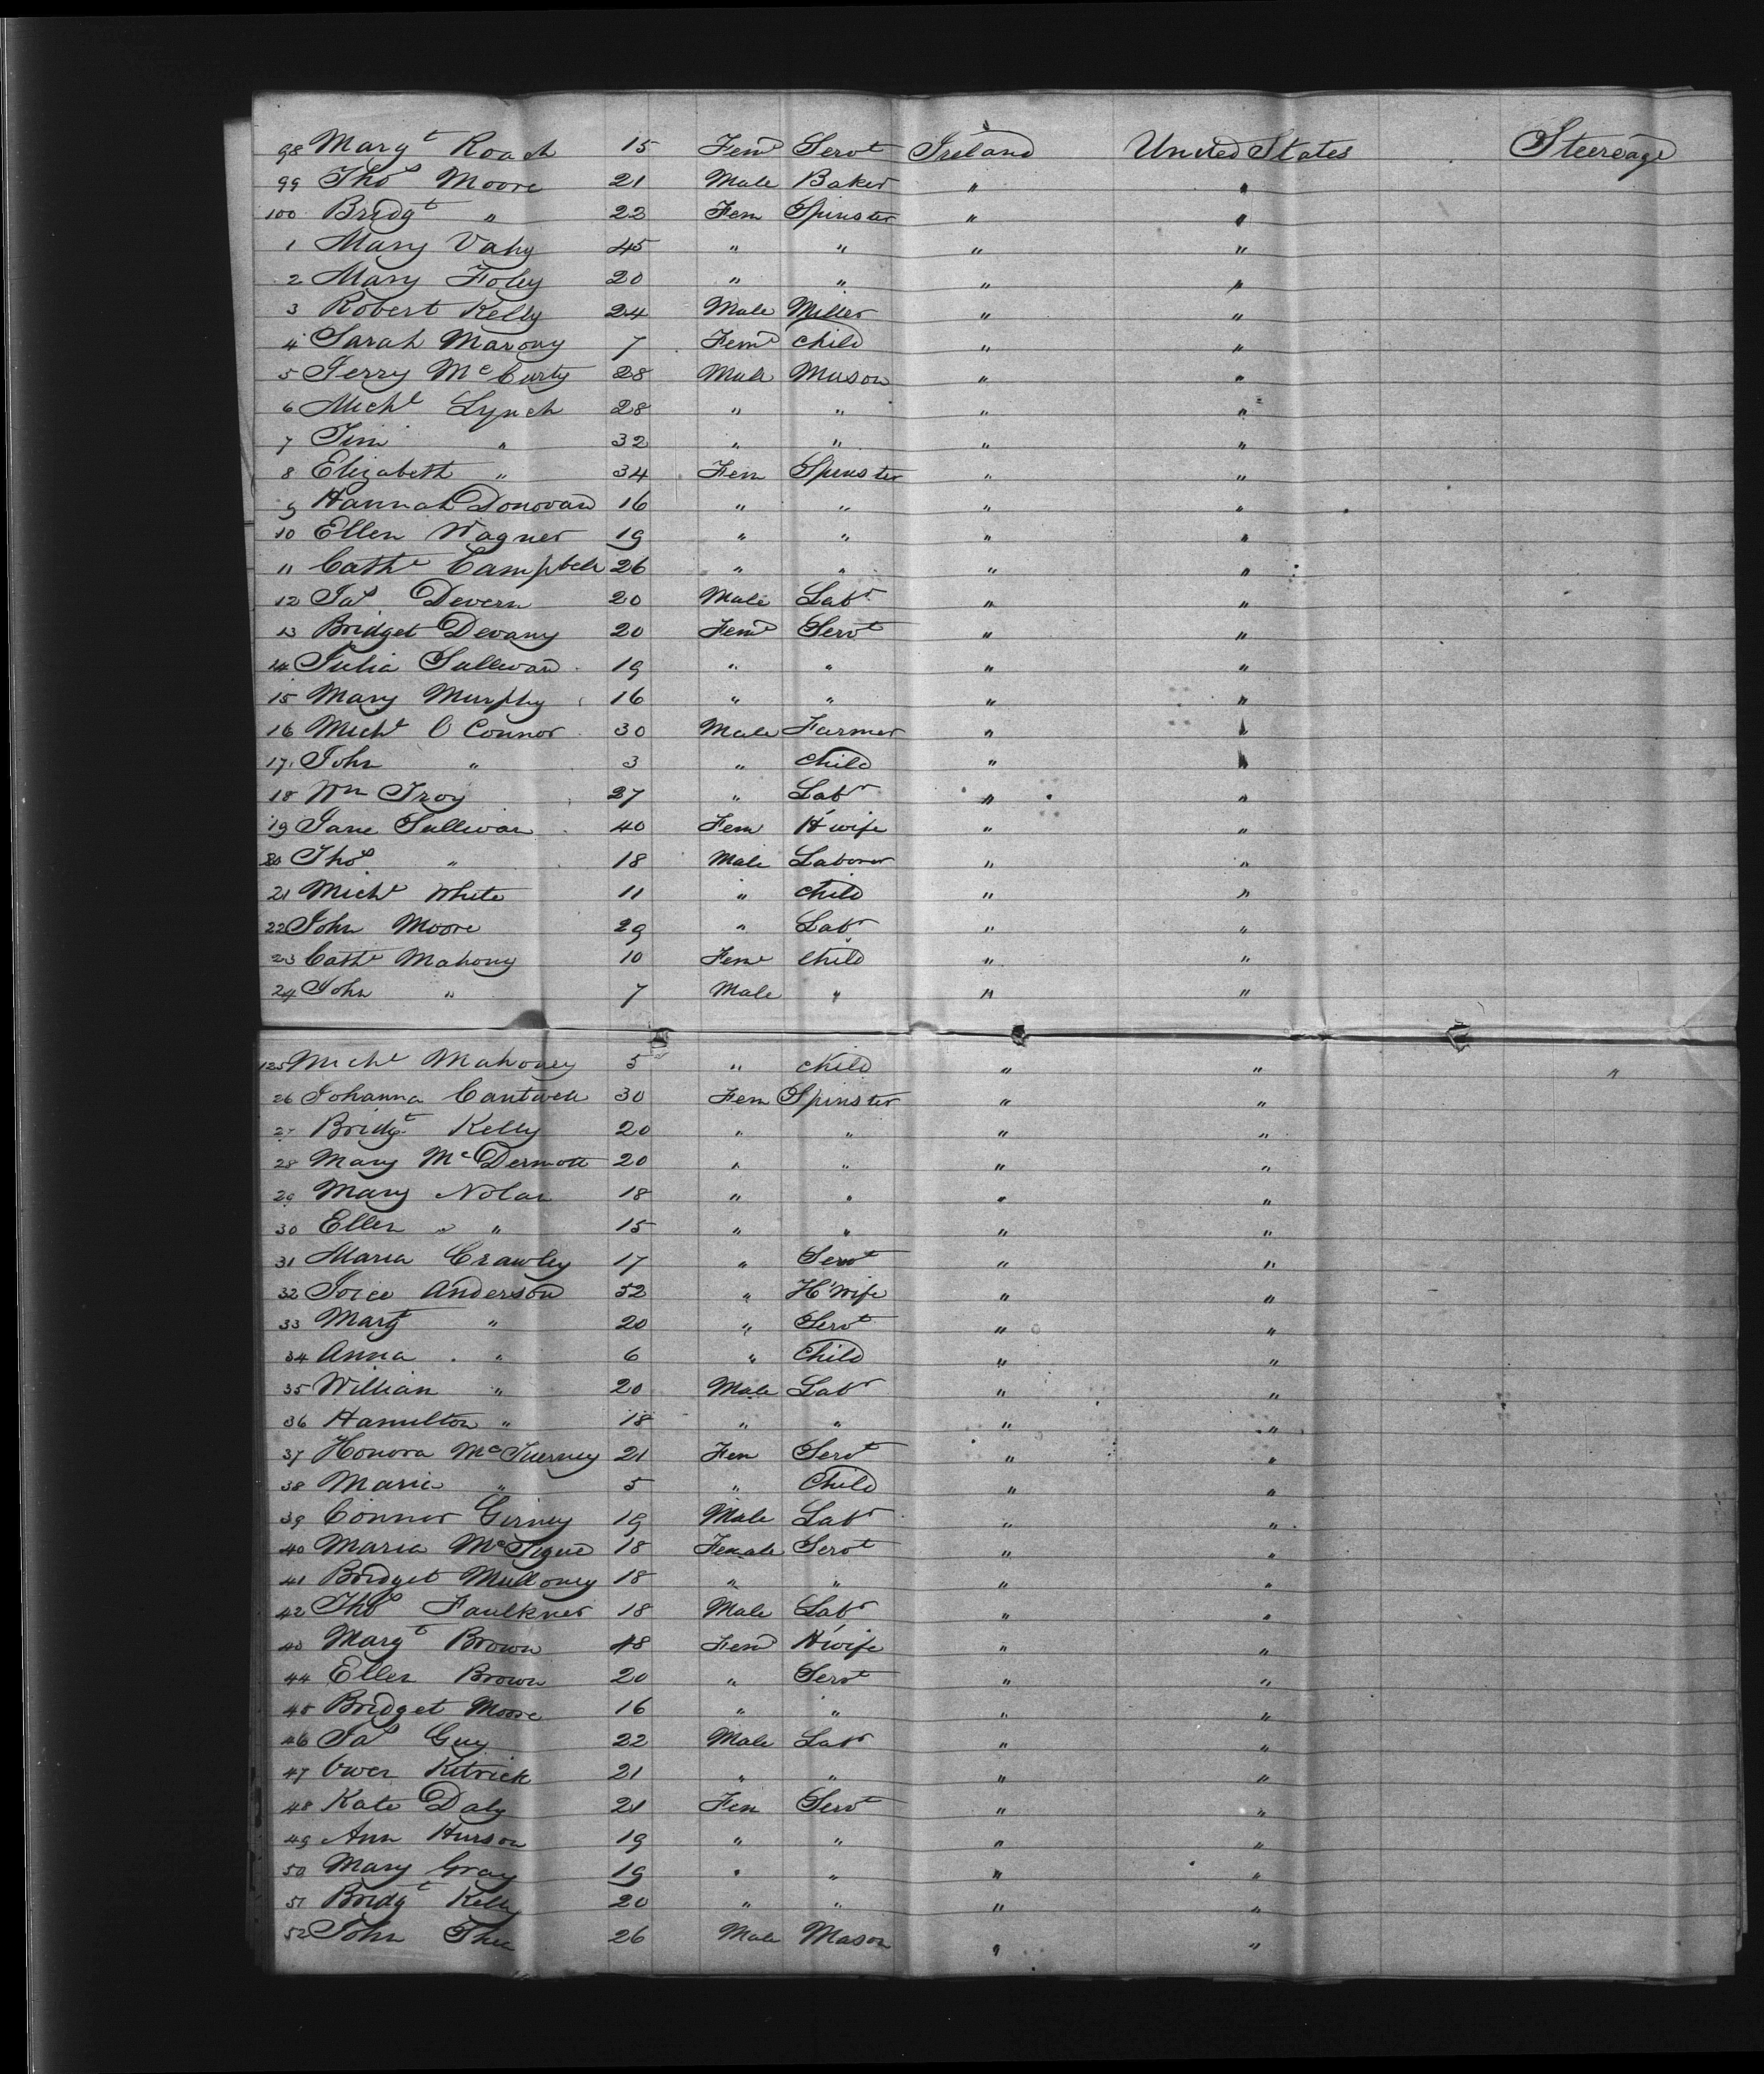 98 Margt Roach 15 Fem Servt Ireland United States Steerage
99 Thos Moore 21 Male Baker " "
100 Bridgt " 22 Fem Spinster " "
1 Mary Vahy 45 " " " "
2 Mary Foley 20 " " " "
3 Robert Kelly 24 Male Miller " "
4 Sarah Marony 7 Fem Child " "
5 Jerry McCarty 28 Male Mason " "
6 Michl Lynch 28 " " " "
7 Jim " 32 " " " "
8 Elizabeth " 34 Fem Spinster " "
9 Hannah Donovan 16 " " " "
10 Ellen Wagner 19 " " " "
11 Cathe Campbell 26 " " " "
12 Jas Devern 20 Male Labr " "
13 Bridget Devany 20 Fem Servt " "
14 Julia Sullivan 19 " " " "
15 Mary Murphy 16 " " " "
16 Michl O Connor 30 Male Farmer " "
17 John " 3 " Child " "
18 Wm Troy 27 " Labr " "
19 Jane Sullivan 40 Fem H'wife " "
20 Thos " 18 Male Laborer " "
21 Michl White 11 " Child " "
22 John Moore 29 " Labr " "
23 Cathe Mahony 10 Fem Child " "
24 John " 7 Male " " "
125 Michl Mahoney 5 " Child " " "
26 Johanna Cantwell 30 Fem Spinster " "
27 Bridgt Kelly 20 " " " "
28 Mary McDermott 20 " " " "
29 Mary Nolan 18 " " " "
30 Ellen " 15 " " " "
31 Maria Crawley 17 " Servt " "
32 Joice Anderson 52 " H'wife " "
33 Margt " 20 " Servt " "
34 Anna " 6 " Child " "
35 William " 20 Male Labr " "
36 Hamilton " 18 " " " "
37 Honora McTuerney 21 Fem Servt " "
38 Maria " 5 " Child " "
39 Connor Girney 19 Male Labr " "
40 Maria McTigue 18 Female Servt " "
41 Bridget Mulloney 18 " " " "
42 Thos Faulkner 18 Male Labr " "
43 Margt Brown 48 Fem H'wife " "
44 Ellen Brown 20 " Servt " "
45 Bridget Moore 16 " " " "
46 Jas Guy 22 Male Labr " "
47 Owen Kitrick 21 " " " "
48 Kate Daly 21 Fem Servt " "
49 Ann Hurson 19 " " " "
50 Mary Gray 19 " " " "
51 Bridgt Kelly 20 " " " "
52 John 26 Male Mason " "